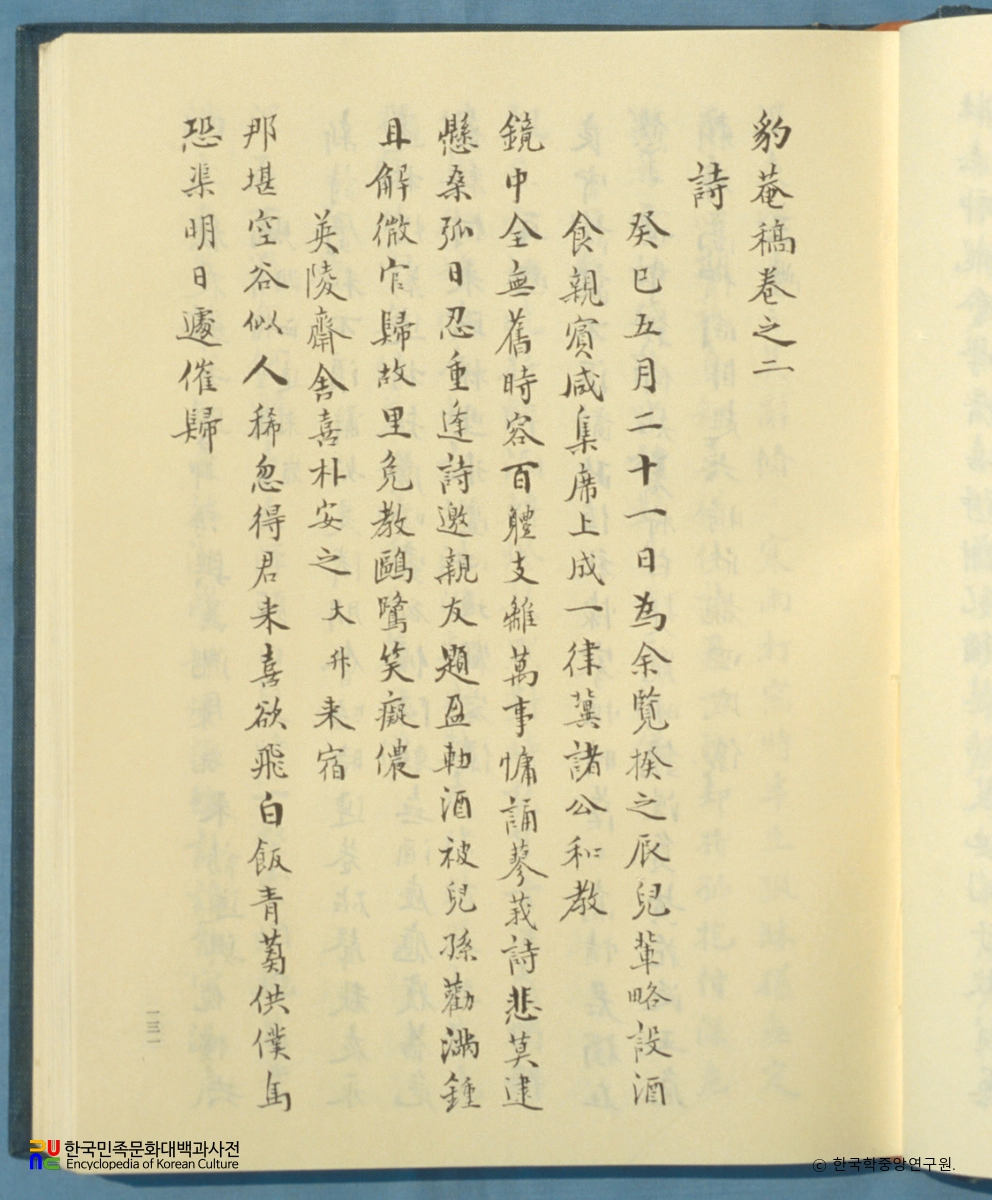 豹菴稿卷之二
詩
癸巳五月二十一日為余覽揆之辰兒輩略設酒
食親賓咸集席上成一律冀諸公和教
鏡中全無舊時容百體支離萬事慵誦蓼莪詩悲莫逮
懸桑弧日忍重逢詩邀親友題盈軸酒被兒孫勸滿鍾
且解微官歸故里免教鷗鷺笑癡儂
英陵齋舍喜朴安之大升来宿
那堪空谷似人稀忽得君来喜欲飛白飯青蒭供僕馬
恐渠明日遽催歸
一三一
한국민족문화대백과사전
Encyclopedia of Korean Culture
© 한국학중앙연구원.